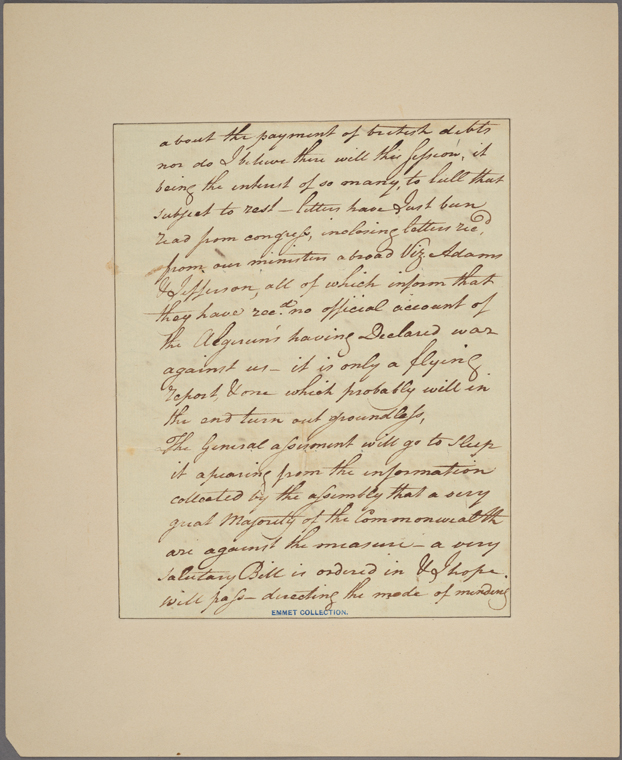 about the payment of british debts
nor do I believe there will this Session, it
being the interest of so many, to lull that
subject to rest – letters have Just been
read from congress, inclosing letters rec'd,
from our ministers abroad Viz Adams
& Jefferson, all of which inform that
they have rec.d no official account of
the Algerin's having Declared war
against us – it is only a flying
report, & one which probably will in
the end turn out groundless,
The General assesment will go to sleep
it apearing from the information
collected by the assembly that a very
great Majority of the Commonwealth
are against the measure – a very
salutary Bill is ordered in & I hope
will pass – directing the mode of mending
EMMET COLLECTION.